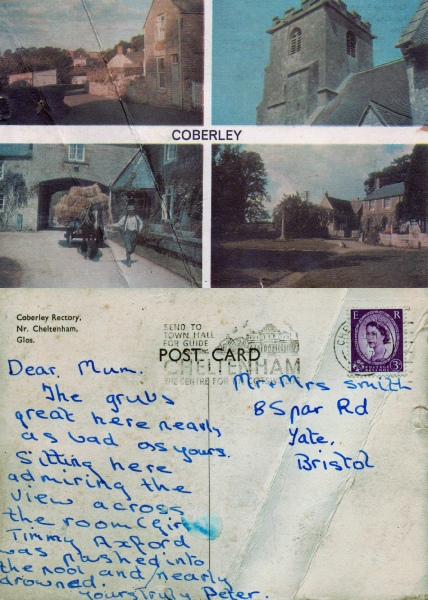 COBERLEY
Coberley Rectory,
Nr. Cheltenham,
Glos.
SEND TO
TOWN HALL
FOR GUIDE
POST CARD
CHELTENHAM
THE CENTRE FOR
E R
3D
Dear. Mum.
The grubs
great here nearly
as bad as yours.
Sitting here
admiring the
view across
the room
Timmy Axford
was pushed into
the pool and nearly
drowned.
Yours Truly Peter.
Mr+Mrs Smith
8 Spar Rd
Yate,
Bristol